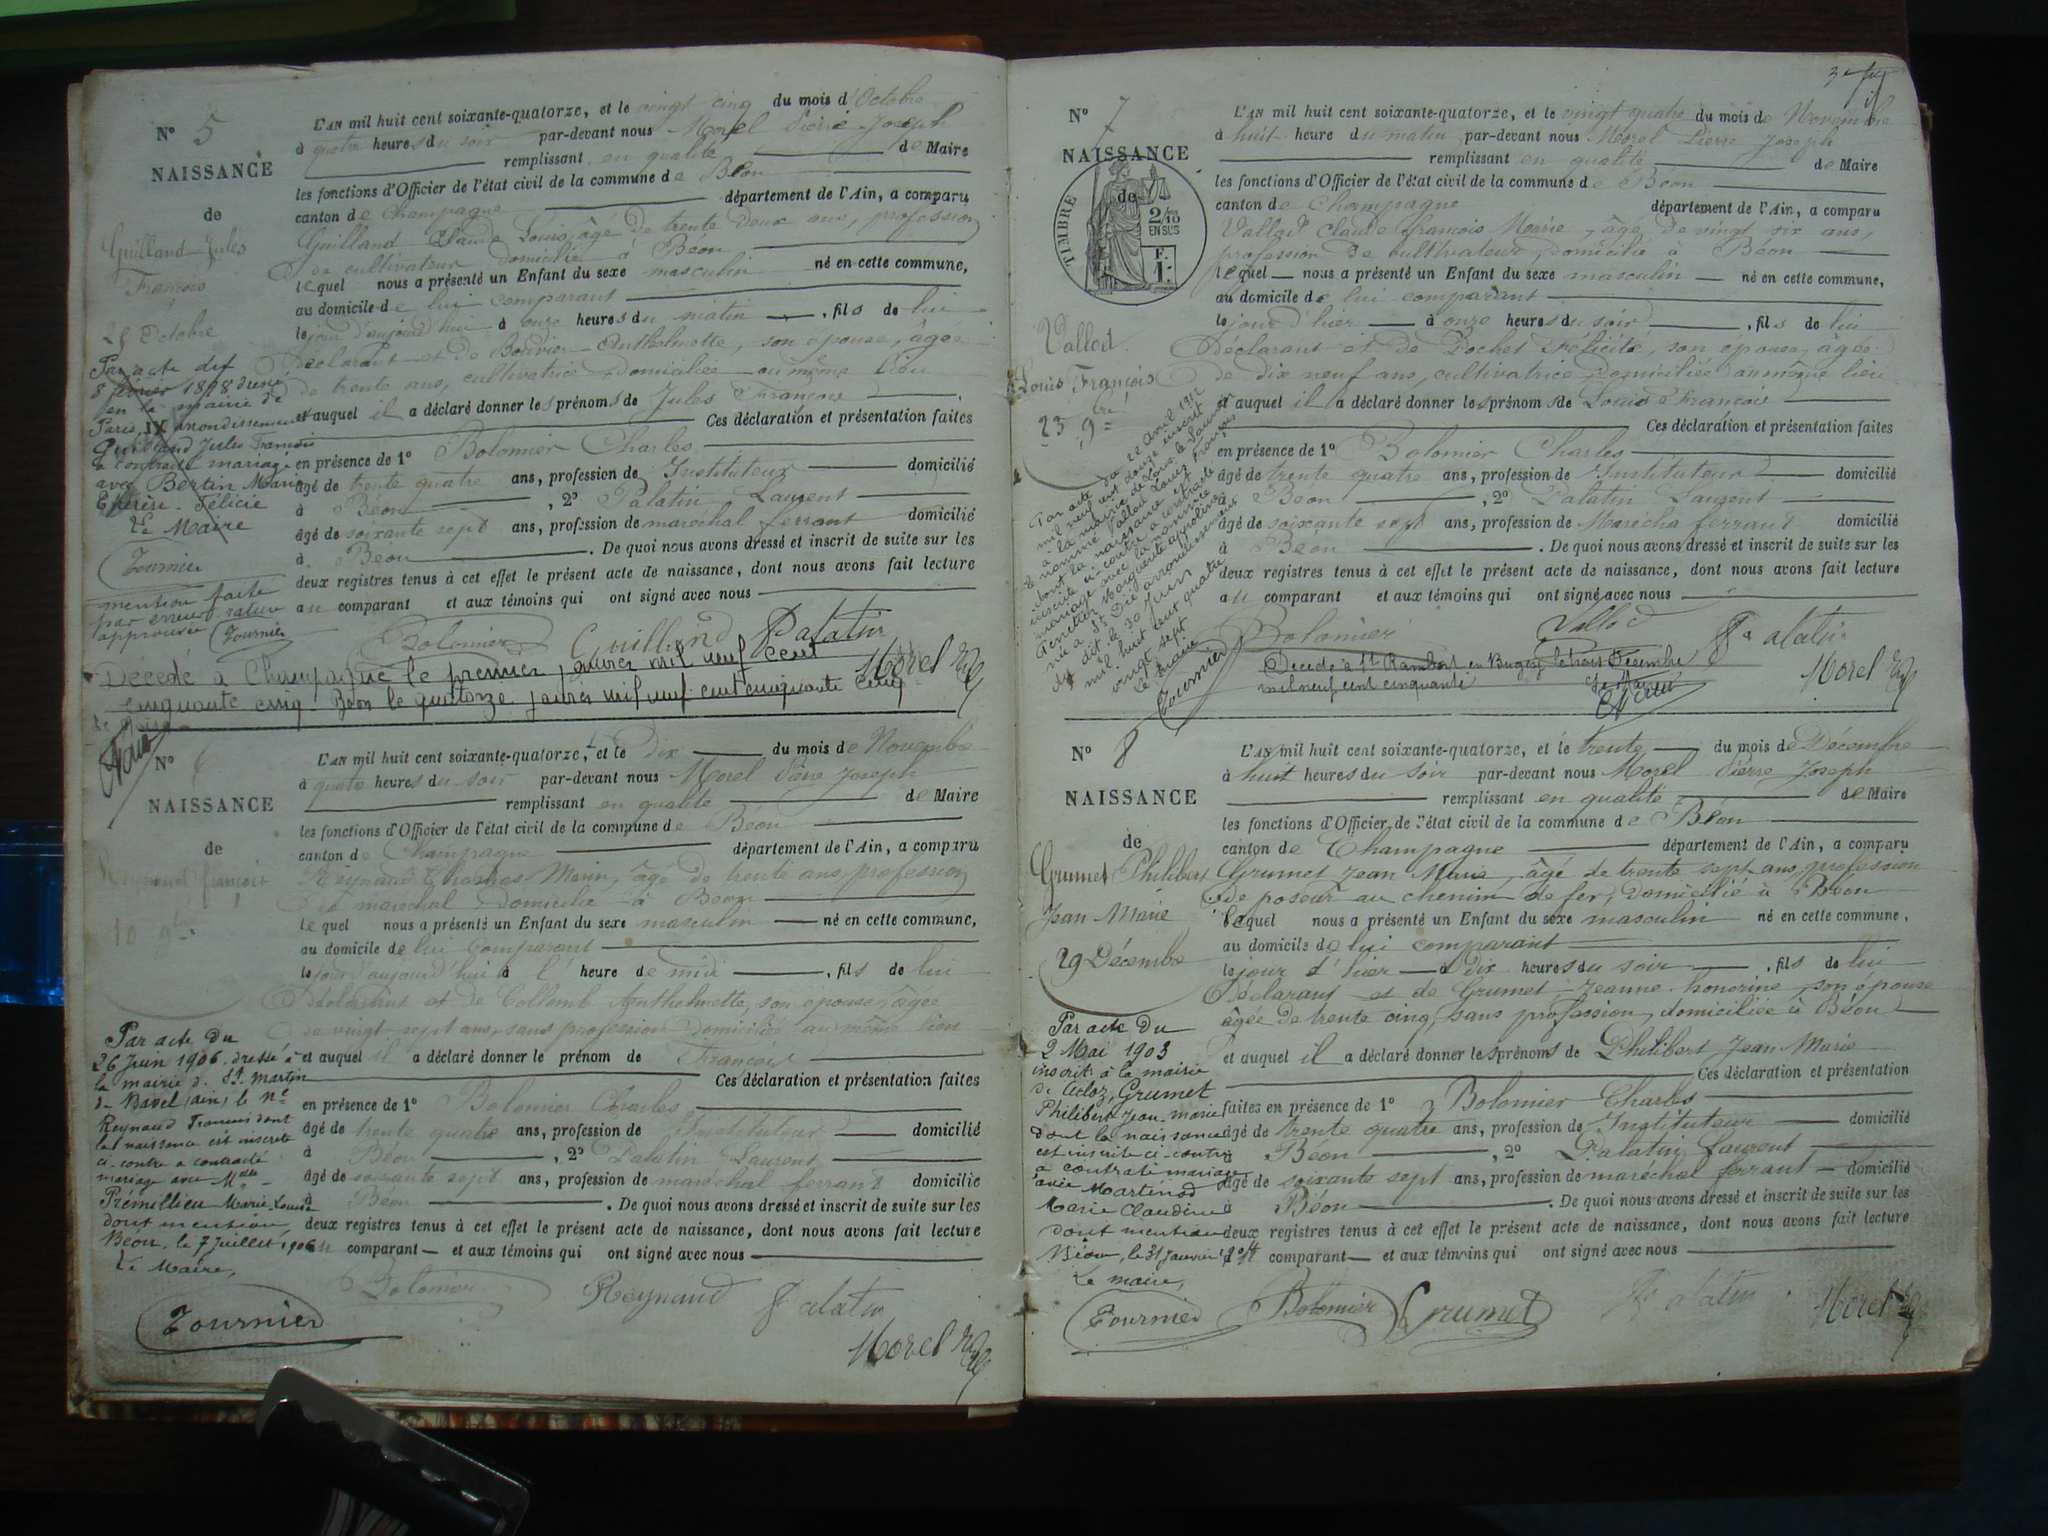 N° 5
NAISSANCE
de
Guilland Jules
François
25 Octobre
Par acte du
8 février 1898 dressé
en la mairie de
Paris, IX arrondissement
Guilland Jules François
a contracté mariage
avec Bertin Marie
Félicie
Le Maire
Tournier
mention faite
par erreur rature
approuvée Tournier
L'AN mil huit cent soixante-quatorze, et le vingt cinq du mois d'Octobre
à quatre heures du soir par-devant nous Morel Pierre Joseph
remplissant en qualité de Maire
les fonctions d'Officier de l'état civil de la commune de Béon
canton de Champagne département de l'Ain, a comparu
Guilland Claude Louis, âgé de trente deux ans, profession
de cultivateur domicilié à Béon
lequel nous a présenté un Enfant du sexe masculin né en cette commune,
au domicile de lui comparant
le jour d'aujourd'hui à onze heures du matin , fils de lui
Déclarant et de Bouvier Anthelmette, son épouse, âgée
de trente ans, cultivatrice domiciliée au même lieu
et auquel il a déclaré donner les prénoms de Jules François
Ces déclaration et présentation faites
en présence de 1° Bolomier Charles
âgé de trente quatre ans, profession de Instituteur domicilié
à Béon , 2° Palatin Laurent
âgé de soixante sept ans, profession de maréchal ferrant domicilié
à Béon . De quoi nous avons dressé et inscrit de suite sur les
deux registres tenus à cet effet le présent acte de naissance, dont nous avons fait lecture
au comparant et aux témoins qui ont signé avec nous
Bolomier Guilland Palatin
Morel
Décédé à Champagne le premier janvier mil neuf cent
cinquante cinq. Béon le quatorze janvier mil neuf cent cinquante cinq
Le Maire
N° 6
NAISSANCE
de
Reynaud François
10 9bre
Par acte du
26 Juin 1906 dressé à
la mairie de St Martin
de Bavel (ain) le Né
Reynaud François dont
la naissance est inscrite
ci-contre a contracté
mariage avec Mlle
Prémillieu Marie Louise
dont mention,
Béon, le 7 Juillet 1906
Le Maire,
Tournier
L'AN mil huit cent soixante-quatorze, et le dix du mois de Novembre
à quatre heures du soir par-devant nous Morel Pierre Joseph
remplissant en qualité de Maire
les fonctions d'Officier de l'état civil de la commune de Béon
canton de Champagne département de l'Ain, a comparu
Reynaud Charles Marin, âgé de trente ans, profession
de maréchal domicilié à Béon
lequel nous a présenté un Enfant du sexe masculin né en cette commune,
au domicile de lui comparant
le jour d'aujourd'hui à l' heure de midi , fils de lui
Déclarant et de Collomb Anthelmette, son épouse, âgée
de vingt sept ans, sans profession domiciliée au même lieu
et auquel il a déclaré donner le prénom de François
Ces déclaration et présentation faites
en présence de 1° Bolomier Charles
âgé de trente quatre ans, profession de Instituteur domicilié
à Béon , 2° Palatin Laurent
âgé de soixante sept ans, profession de maréchal ferrant domicilié
à Béon . De quoi nous avons dressé et inscrit de suite sur les
deux registres tenus à cet effet le présent acte de naissance, dont nous avons fait lecture
au comparant et aux témoins qui ont signé avec nous
Bolomier Reynaud Palatin
Morel
N° 7
NAISSANCE
de
TIMBRE
2/10
EN SUS
F.
1.
Vallod
Louis François
23 9bre
Par acte du 22 avril 1912
mil neuf cent douze inscrit
à la mairie de
le nommé Vallod Louis François
dont la naissance est
inscrite ci-contre a contracté
mariage avec la nommée
Marguerite appoline
née à St Dié arrondissement
du dit le 30 Juin
mil huit cent quatre
vingt sept
Le Maire
Tournier
L'AN mil huit cent soixante-quatorze, et le vingt quatre du mois de Novembre
à huit heure du matin par-devant nous Morel Pierre Joseph
remplissant en qualité de Maire
les fonctions d'Officier de l'état civil de la commune de Béon
canton de Champagne département de l'Ain, a comparu
Vallod Claude François Marie, âgé de vingt six ans,
profession de cultivateur, domicilié à Béon
lequel nous a présenté un Enfant du sexe masculin né en cette commune,
au domicile de lui comparant
le jour d'hier à onze heures du soir , fils de lui
Déclarant et de Pochet Félicité, son épouse, âgée
de dix neuf ans, cultivatrice, domiciliée au même lieu
et auquel il a déclaré donner les prénoms de Louis François
Ces déclaration et présentation faites
en présence de 1° Bolomier Charles
âgé de trente quatre ans, profession de Instituteur domicilié
à Béon , 2° Palatin Laurent
âgé de soixante sept ans, profession de Marécha ferrant domicilié
à Béon . De quoi nous avons dressé et inscrit de suite sur les
deux registres tenus à cet effet le présent acte de naissance, dont nous avons fait lecture
au comparant et aux témoins qui ont signé avec nous
Bolomier Vallod Palatin
Morel
Décédé à St Rambert en Bugey le trois Décembre
mil neuf cent cinquante
Le Maire
N° 8
NAISSANCE
de
Grumet Philibert
Jean Marie
29 Décembre
Par acte du
2 Mai 1903
inscrit à la mairie
de Culoz, Grumet
Philibert Jean-Marie
dont la naissance
est inscrite ci-contre
a contracté mariage
avec Martinod
Marie Claudine
dont mention
Béon, le 31 Janvier 1904
Le maire,
Tournier
L'AN mil huit cent soixante-quatorze, et le trente du mois de Décembre
à huit heures du soir par-devant nous Morel Pierre Joseph
remplissant en qualité de Maire
les fonctions d'Officier de l'état civil de la commune de Béon
canton de Champagne département de l'Ain, a comparu
Grumet Jean Marie, âgé de trente sept ans, profession
de poseur au chemin de fer, domicilié à Béon
lequel nous a présenté un Enfant du sexe masculin né en cette commune,
au domicile de lui comparant
le jour d'hier à dix heures du soir , fils de lui
Déclarant et de Grumet Jeanne honorine, son épouse
âgée de trente cinq, sans profession, domiciliée à Béon
et auquel il a déclaré donner les prénoms de Philibert Jean Marie
Ces déclaration et présentation
faites en présence de 1° Bolomier Charles
âgé de trente quatre ans, profession de Instituteur domicilié
à Béon , 2° Palatin Laurent
âgé de soixante sept ans, profession de maréchal ferrant domicilié
à Béon . De quoi nous avons dressé et inscrit de suite sur les
deux registres tenus à cet effet le présent acte de naissance, dont nous avons fait lecture
au comparant et aux témoins qui ont signé avec nous
Bolomier Grumet Palatin Morel